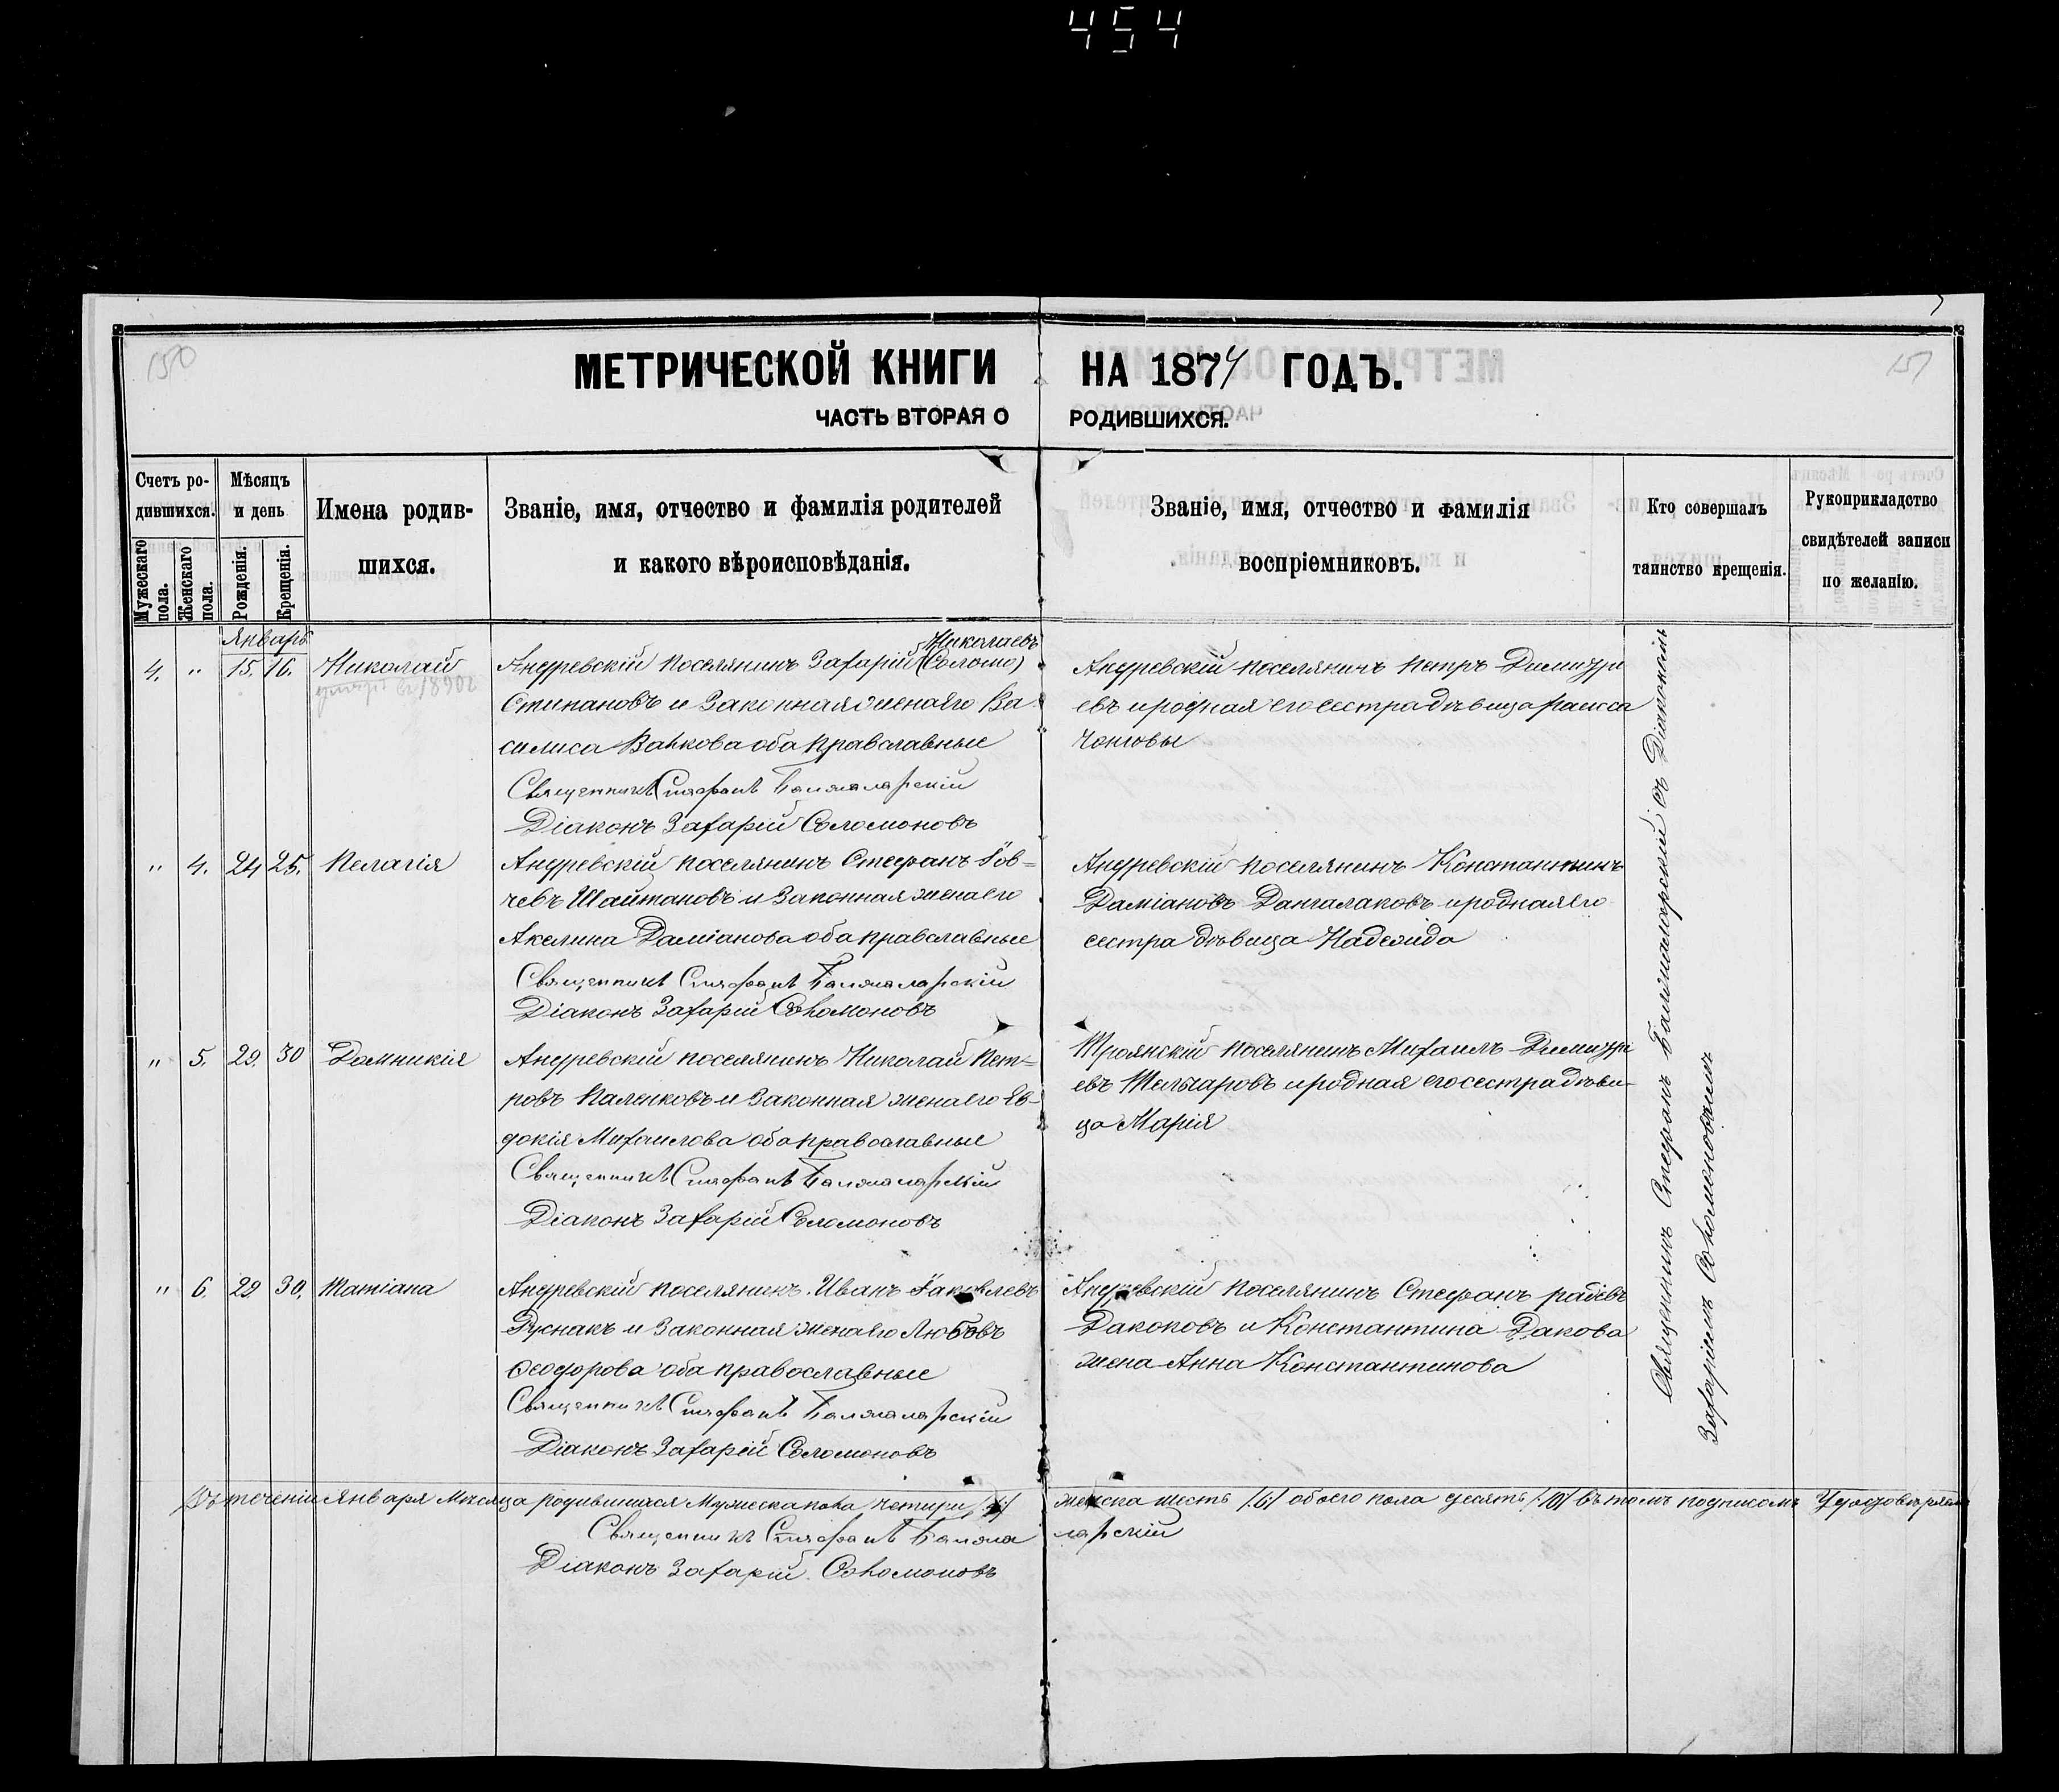 454
150
МЕТРИЧЕСКОЙ КНИГИ НА 1874 ГОДЪ.
151
ЧАСТЬ ВТОРАЯ О РОДИВШИХСЯ.
Счетъ родившихся.
Мужескаго пола.
Женскаго пола.
Мѣсяцъ и день
Рожденія.
Крещенія.
Имена родив-
шихся.
Званіе, имя, отчество и фамилія родителей
и какого вѣроисповѣданія.
Званіе, имя, отчество и фамилія
воспріемниковъ.
Кто совершалъ
таинство крещенія.
Рукоприкладство
свидѣтелей записи
по желанію.
Январь
4. " 15. 16. Николай
Николаевъ
Андревскій поселянинъ Захарій (Соломо)
Стипановъ и Законная жена его Ва-
силиса Вапкова оба православные
Священникъ Стефанъ Балжаларскій
Діаконъ Захарій Соломоновъ
Андревскій поселянинъ Петръ Димитри
евъ и родная его сестра дѣвица Раисса
Чонговы
" 4. 24 25. Пелагія
Андревскій поселянинъ Стефанъ Іов-
чевъ Шайтановъ и Законная жена его
Акелина Даміанова оба православные
Священникъ Стефанъ Балжаларскій
Діаконъ Захарій Соломоновъ
Андревскій поселянинъ Константинъ
Даміановъ Дангалаковъ и родная его
сестра дѣвица Надежда
" 5. 29. 30 Домникія
Андревскій поселянинъ Николай Пет-
ровъ Паленковъ и Законная жена его Ев-
докія Михаилова оба православные
Священникъ Стефанъ Балжаларскій
Діаконъ Захарій Соломоновъ
Троянскій поселянинъ Михаилъ Димитри
евъ Тельчаровъ и родная его сестра дѣви-
ца Марія
" 6. 29 30. Татіана
Андревскій поселянинъ Иванъ Іаковлевъ
Руснакъ и Законная жена его Любовъ
Феодорова оба православные
Священникъ Стефанъ Балжаларскій
Діаконъ Захарій Соломоновъ
Андревскій поселянинъ Стефанъ Радіевъ
Дакоковъ и Константина Дакова
жена Анна Константинова
Священникъ Стефанъ Балжаларскій съ Діакономъ
Захаріемъ Соломоновымъ
Въ теченіи Января Месяца родившихся Мужеска пола четыри /4/ женска шесть /6/ обоего пола десять /10/ въ томъ подписомъ Удостовѣряемъ
Священникъ Стефанъ Балжаларскій
Діаконъ Захарій Соломоновъ